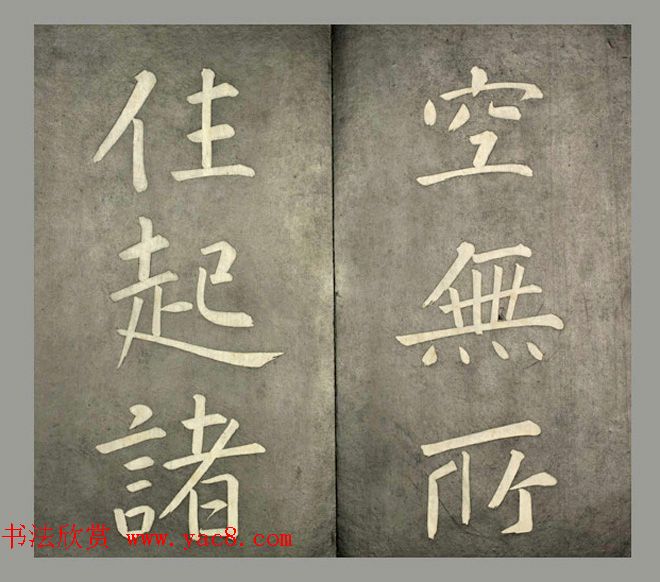 空無所
住起諸
书法欣赏 www.yac8.com